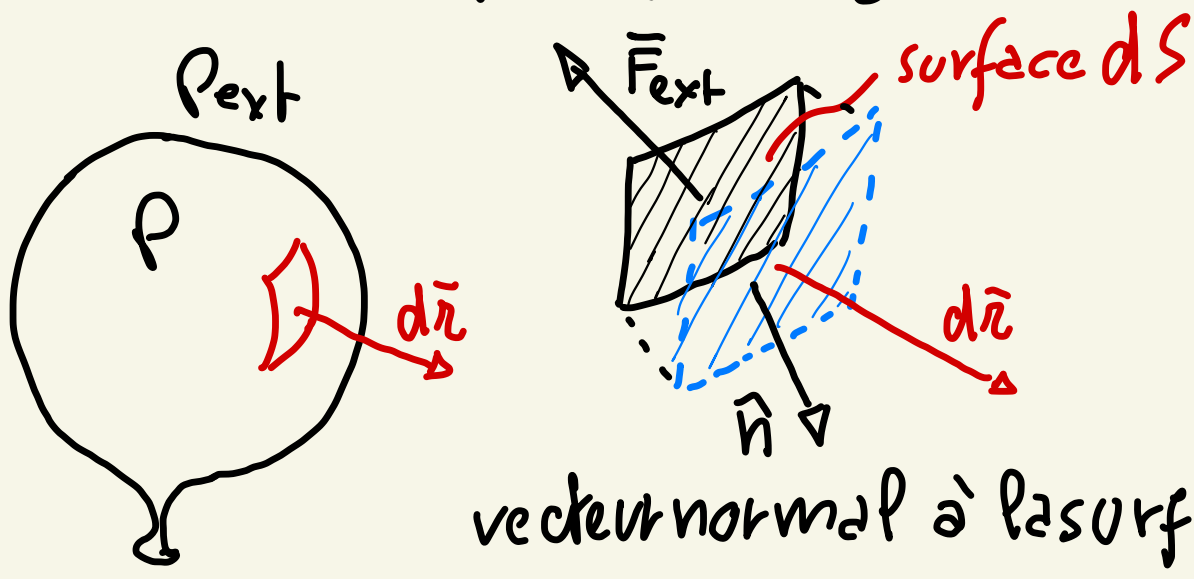 Pext
F̄ext
surface dS
P
dr̄
dr̄
n̂
vecteur normal à la surf